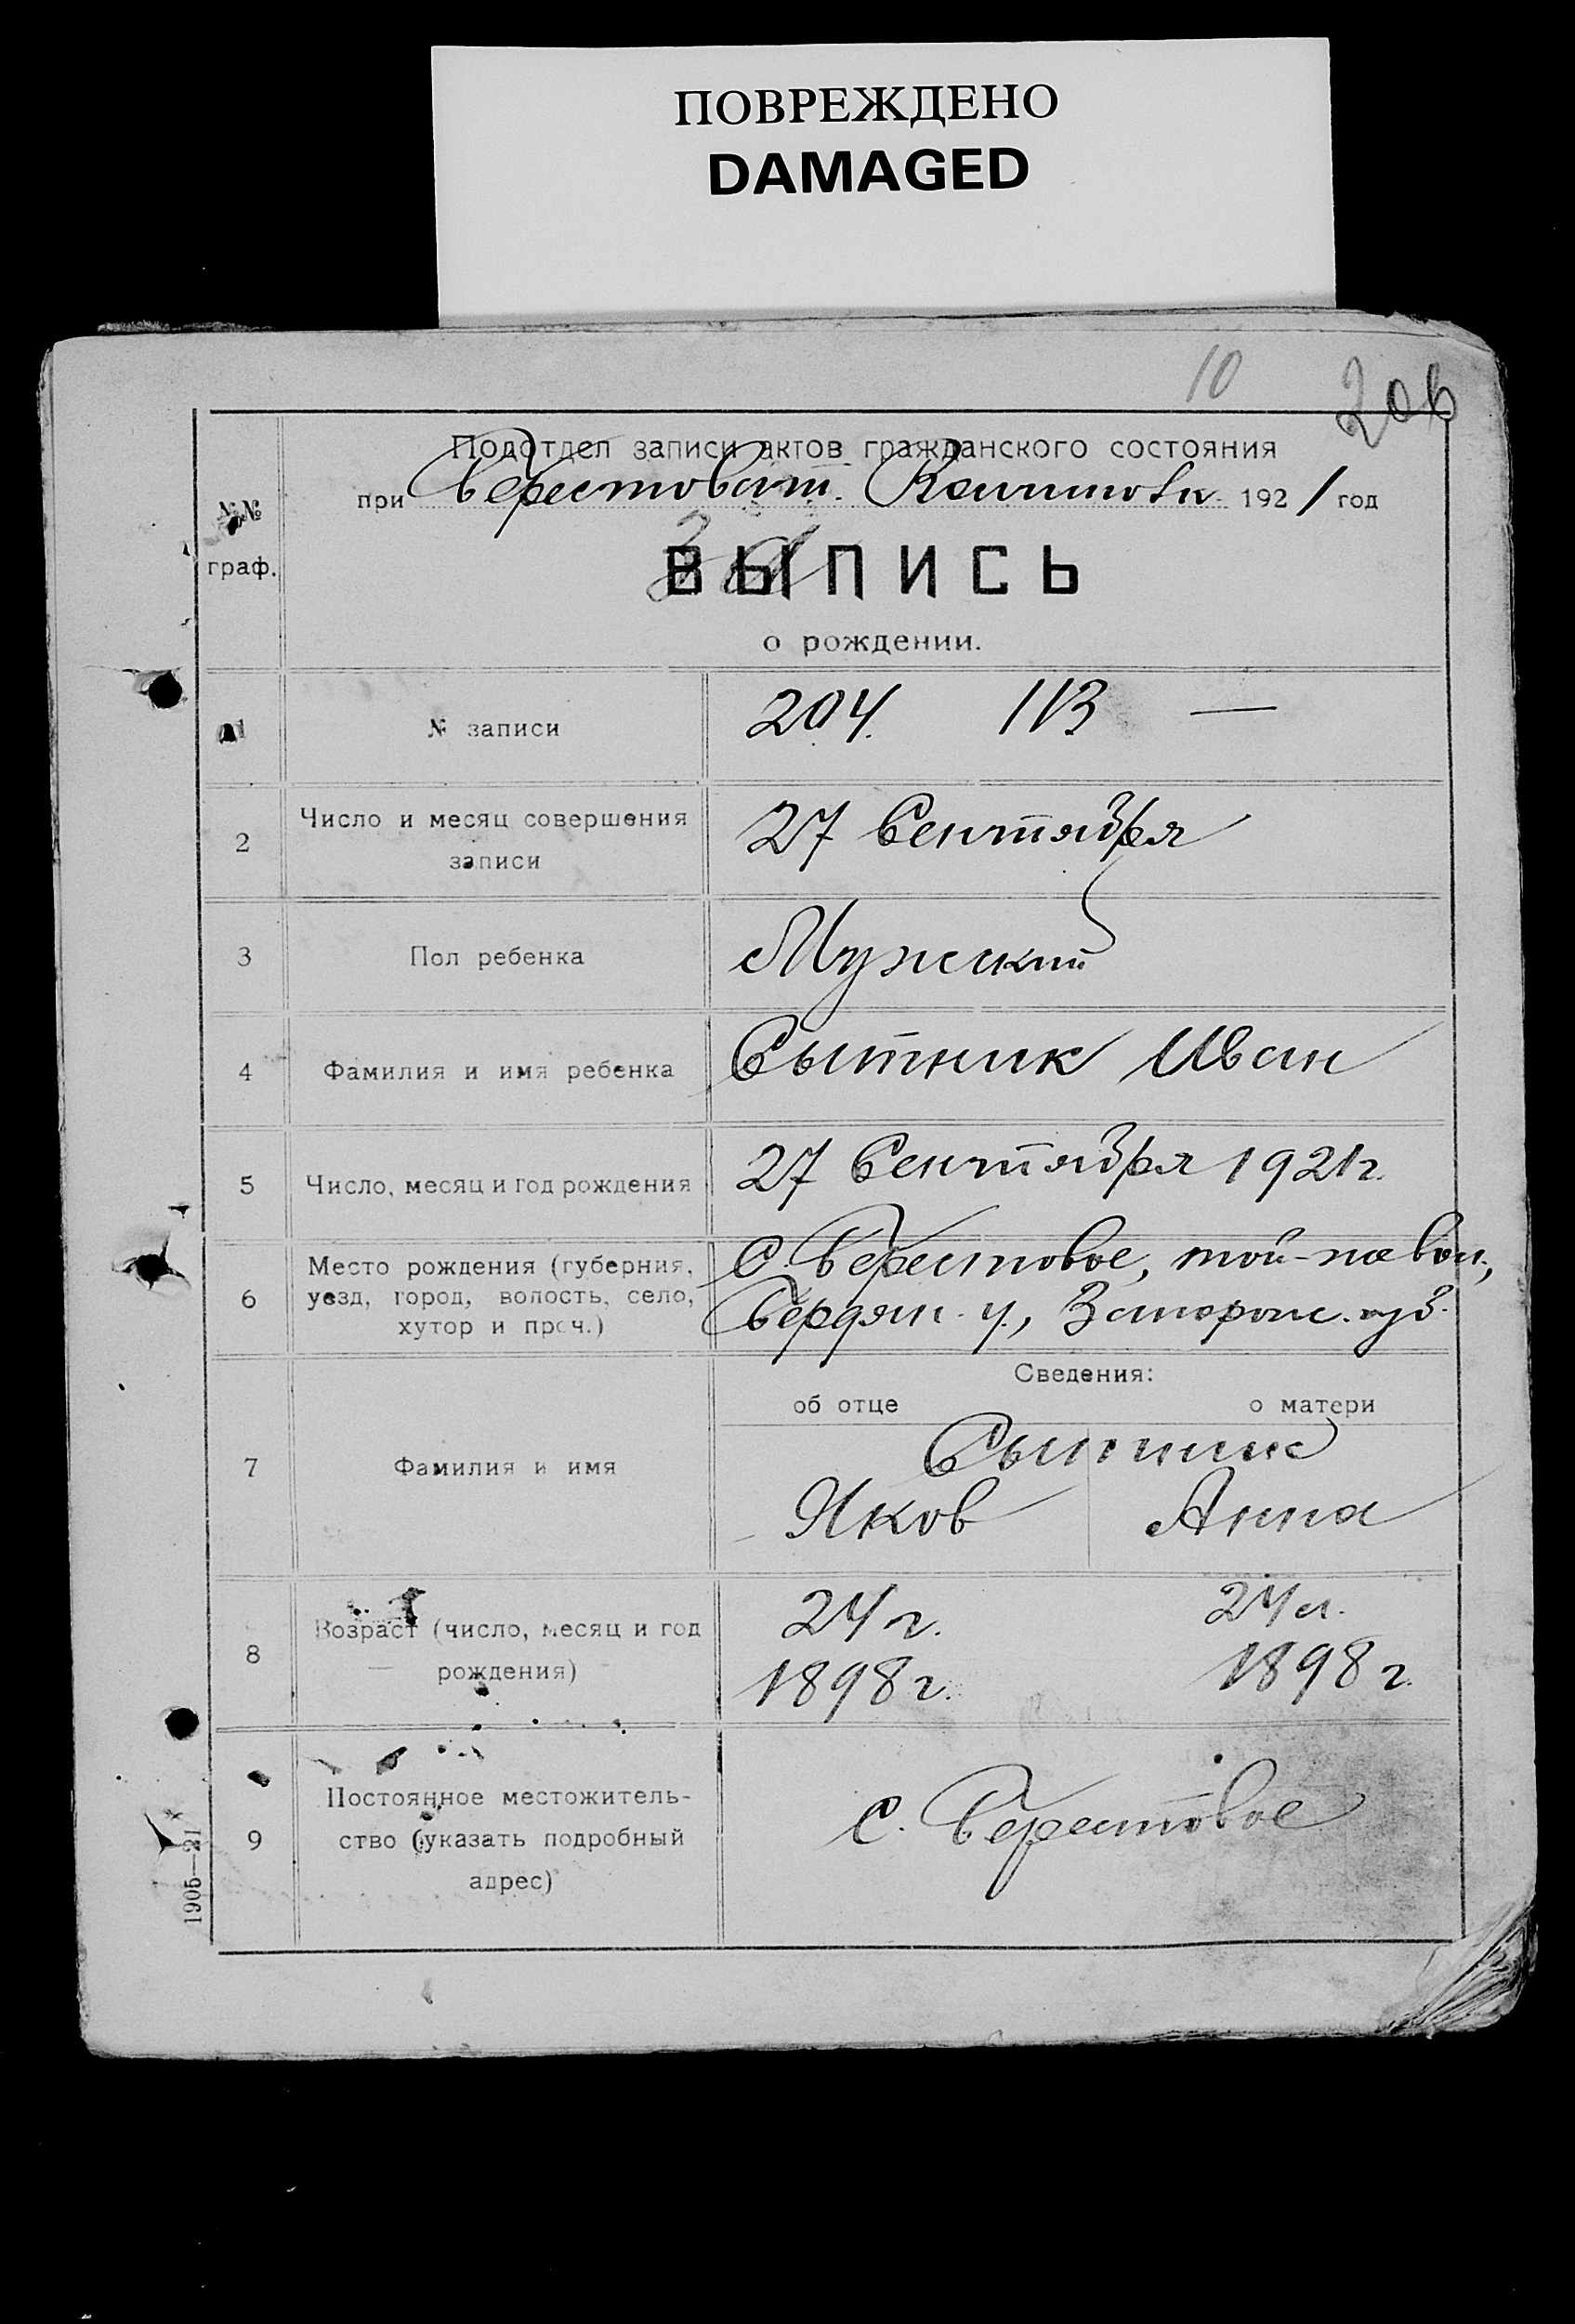 ПОВРЕЖДЕНО
DAMAGED
10 206
Подотдел записи актов гражданского состояния
при Берестоват. 1921 год
№№ граф.
ВЫПИСЬ
о рождении.
1 № записи 204. 113 —
2 Число и месяц совершения
записи
27 Сентября
3 Пол ребенка Мужский
4 Фамилия и имя ребенка Сытник Иван
5 Число, месяц и год рождения 27 Сентября 1921 г.
6 Место рождения (губерния,
уезд, город, волость, село,
хутор и проч.)
С. Берестовое, той-же вол.,
Бердян. у., Запорож. губ.
Сведения:
об отце о матери
7 Фамилия и имя
Сытник
Яков Анна
8 Возраст (число, месяц и год
рождения)
24 г. 24 л.
1898 г. 1898 г.
9 Постоянное местожитель-
ство (указать подробный
адрес)
с. Берестовое
1905—21